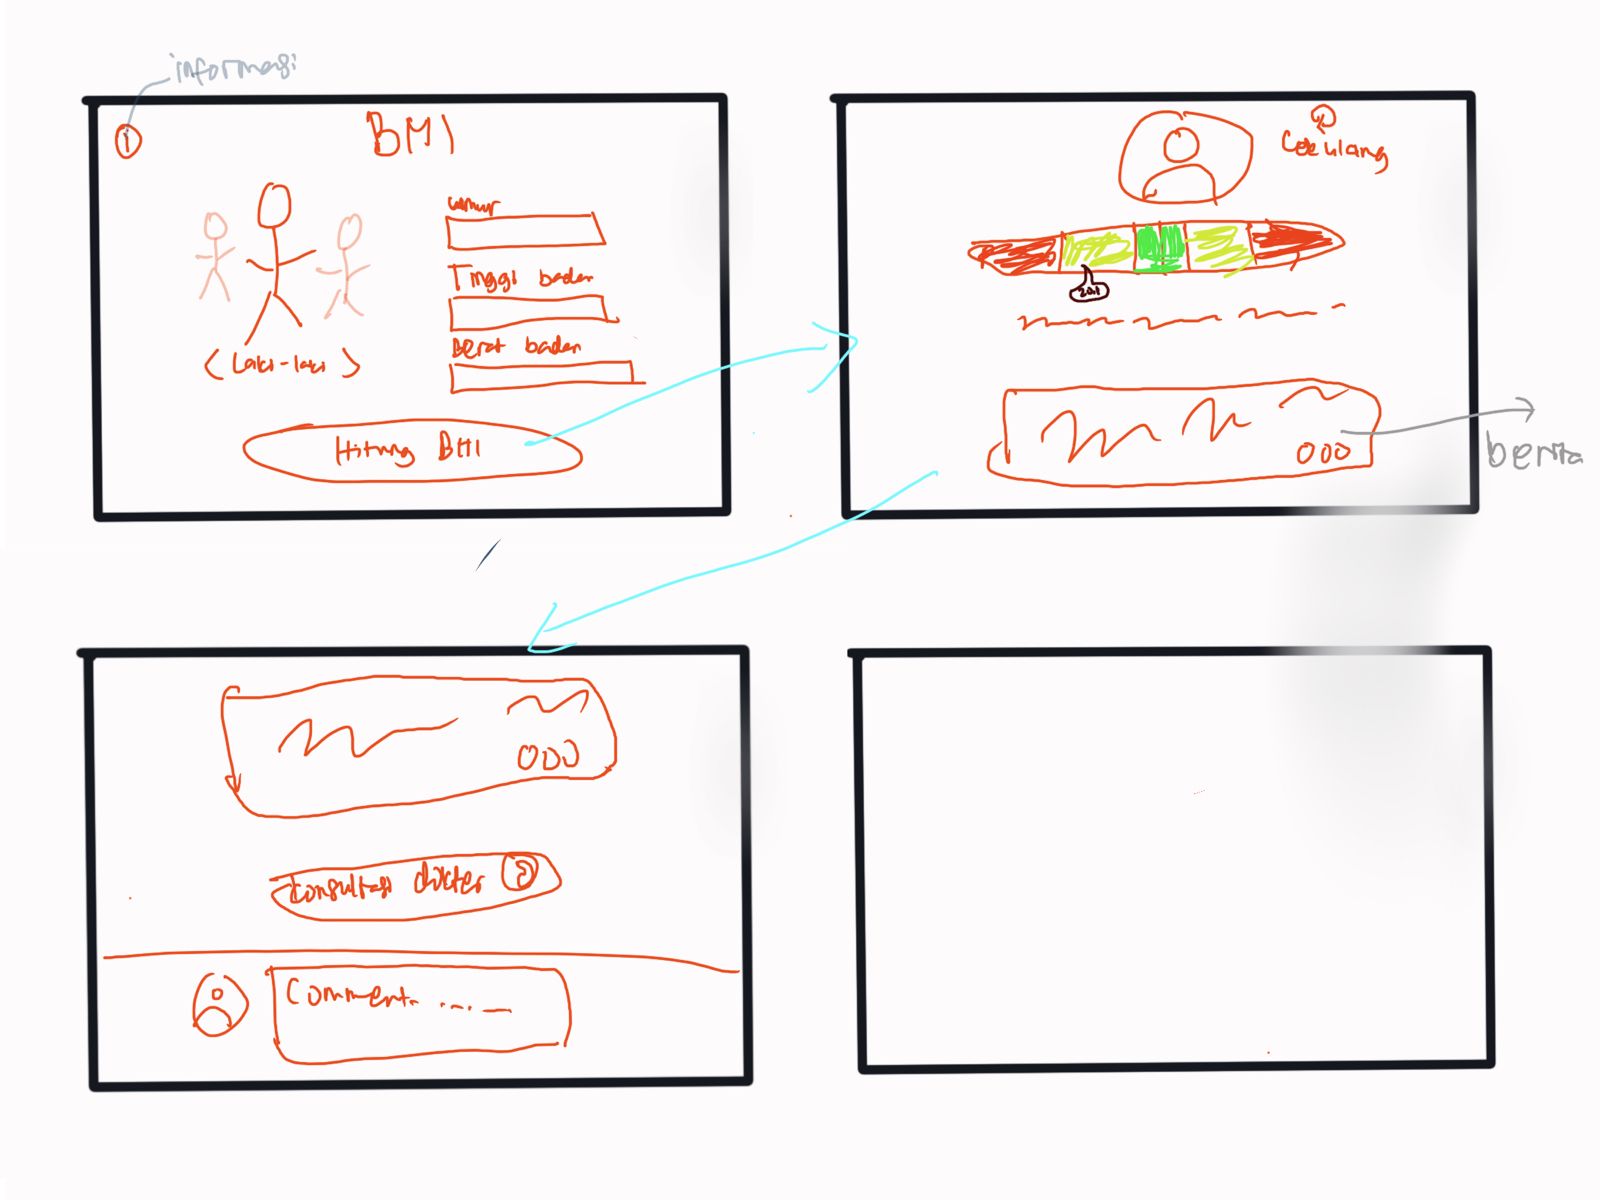 informasi
i
BMI
umur
Tinggi badan
Berat badan
< Laki-laki >
Hitung BMI
Cek ulang
20.1
berita
Consultasi dokter
Comment. ....